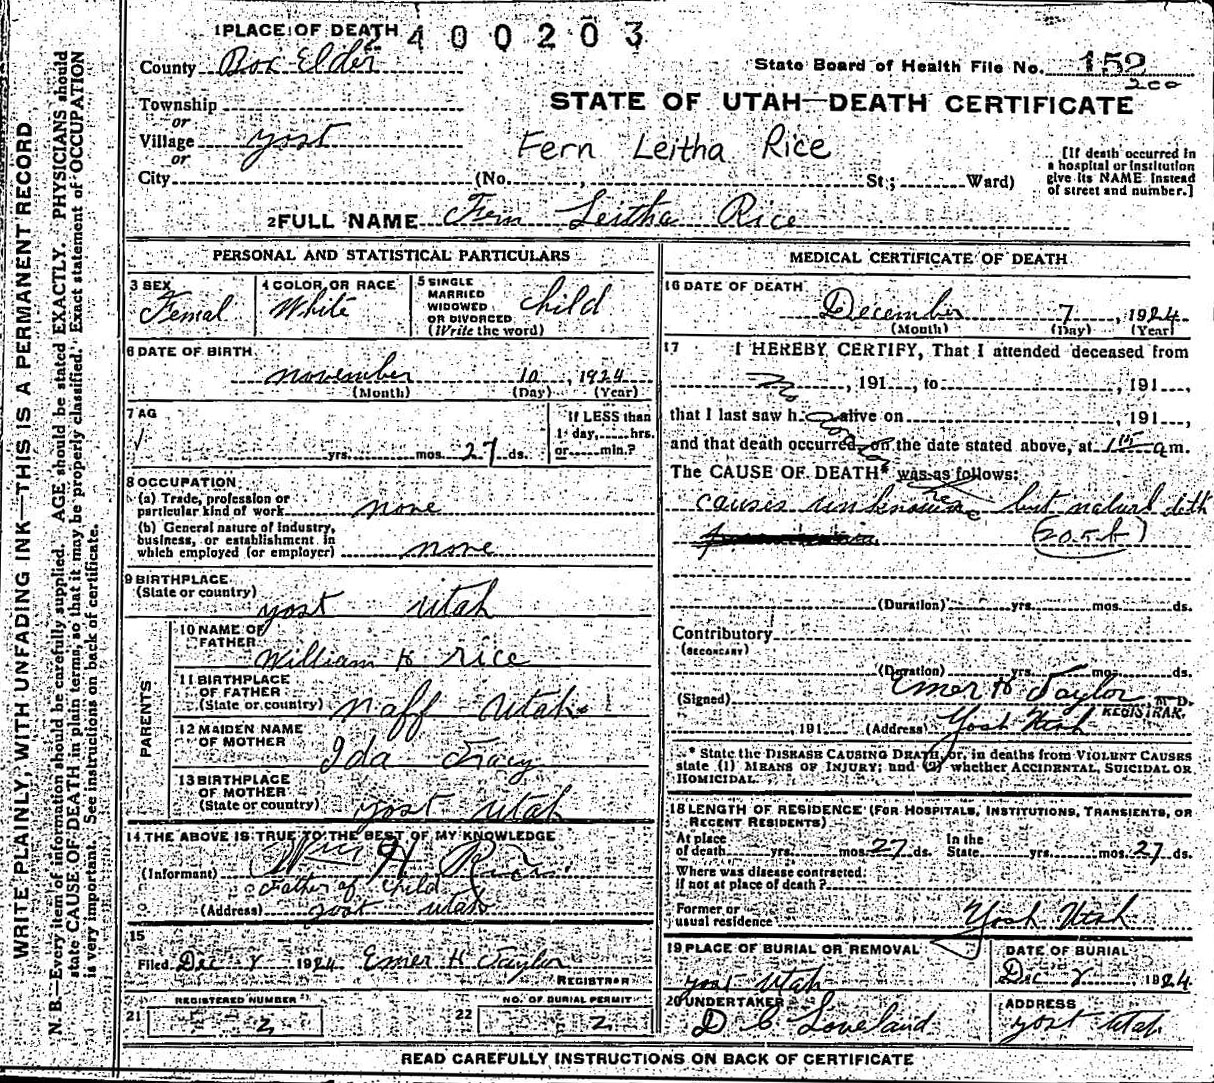 1 PLACE OF DEATH 2 4 0 0 2 0 3
County Box Elder
State Board of Health File No. 152
200
Township
or
Village yost
or
City (No. , St.; Ward)
STATE OF UTAH—DEATH CERTIFICATE
Fern Leitha Rice
[If death occurred in
a hospital or institution
give its NAME instead
of street and number.]
2 FULL NAME Fern Leitha Rice
WRITE PLAINLY, WITH UNFADING INK—THIS IS A PERMANENT RECORD
N. B.—Every item of information should be carefully supplied. AGE should be stated EXACTLY. PHYSICIANS should
state CAUSE OF DEATH in plain terms, so that it may be properly classified. Exact statement of OCCUPATION
is very important. See instructions on back of certificate.
PERSONAL AND STATISTICAL PARTICULARS
3 SEX
Femal
4 COLOR OR RACE
White
5 SINGLE
MARRIED
WIDOWED
OR DIVORCED
(Write the word)
child
6 DATE OF BIRTH
november 10, 1924
(Month) (Day) (Year)
7 AG
yrs. mos. 27 ds.
If LESS than
1 day, hrs.
or min.?
8 OCCUPATION
(a) Trade, profession or
particular kind of work none
(b) General nature of industry,
business, or establishment in
which employed (or employer) none
9 BIRTHPLACE
(State or country) yost utah
PARENTS
10 NAME OF
FATHER William H rice
11 BIRTHPLACE
OF FATHER
(State or country) naff utah
12 MAIDEN NAME
OF MOTHER Ida Tracy
13 BIRTHPLACE
OF MOTHER
(State or country) yost utah
14 THE ABOVE IS TRUE TO THE BEST OF MY KNOWLEDGE
(Informant) Wm H Rice
Father of child
(Address) yost utah
15
Filed Dec 8 1924 Emer H Taylor
REGISTRAR
REGISTERED NUMBER
21 2
NO. OF BURIAL PERMIT
22 2
MEDICAL CERTIFICATE OF DEATH
16 DATE OF DEATH
December 7, 1924
(Month) (Day) (Year)
17 I HEREBY CERTIFY, That I attended deceased from
, 191 , to , 191 ,
that I last saw h alive on , 191 ,
and that death occurred, on the date stated above, at 1 am.
The CAUSE OF DEATH* was as follows:
causes unknown but natural deth
(205b)
(Duration) yrs. mos. ds.
Contributory
(SECONDARY)
(Duration) yrs. mos. ds.
(Signed) Emer H Taylor, M.D.
REGISTRAR.
, 191 (Address) Yost Utah
* State the DISEASE CAUSING DEATH, or, in deaths from VIOLENT CAUSES
state (1) MEANS OF INJURY; and (2) whether ACCIDENTAL, SUICIDAL OR
HOMICIDAL.
18 LENGTH OF RESIDENCE (FOR HOSPITALS, INSTITUTIONS, TRANSIENTS, OR
RECENT RESIDENTS)
At place
of death yrs. mos. 27 ds.
In the
State yrs. mos. 27 ds.
Where was disease contracted,
if not at place of death?
Former or
usual residence Yost Utah
19 PLACE OF BURIAL OR REMOVAL
yost Utah
DATE OF BURIAL
Dec 8 1924
20 UNDERTAKER
D C Loveland
ADDRESS
yost utah
READ CAREFULLY INSTRUCTIONS ON BACK OF CERTIFICATE